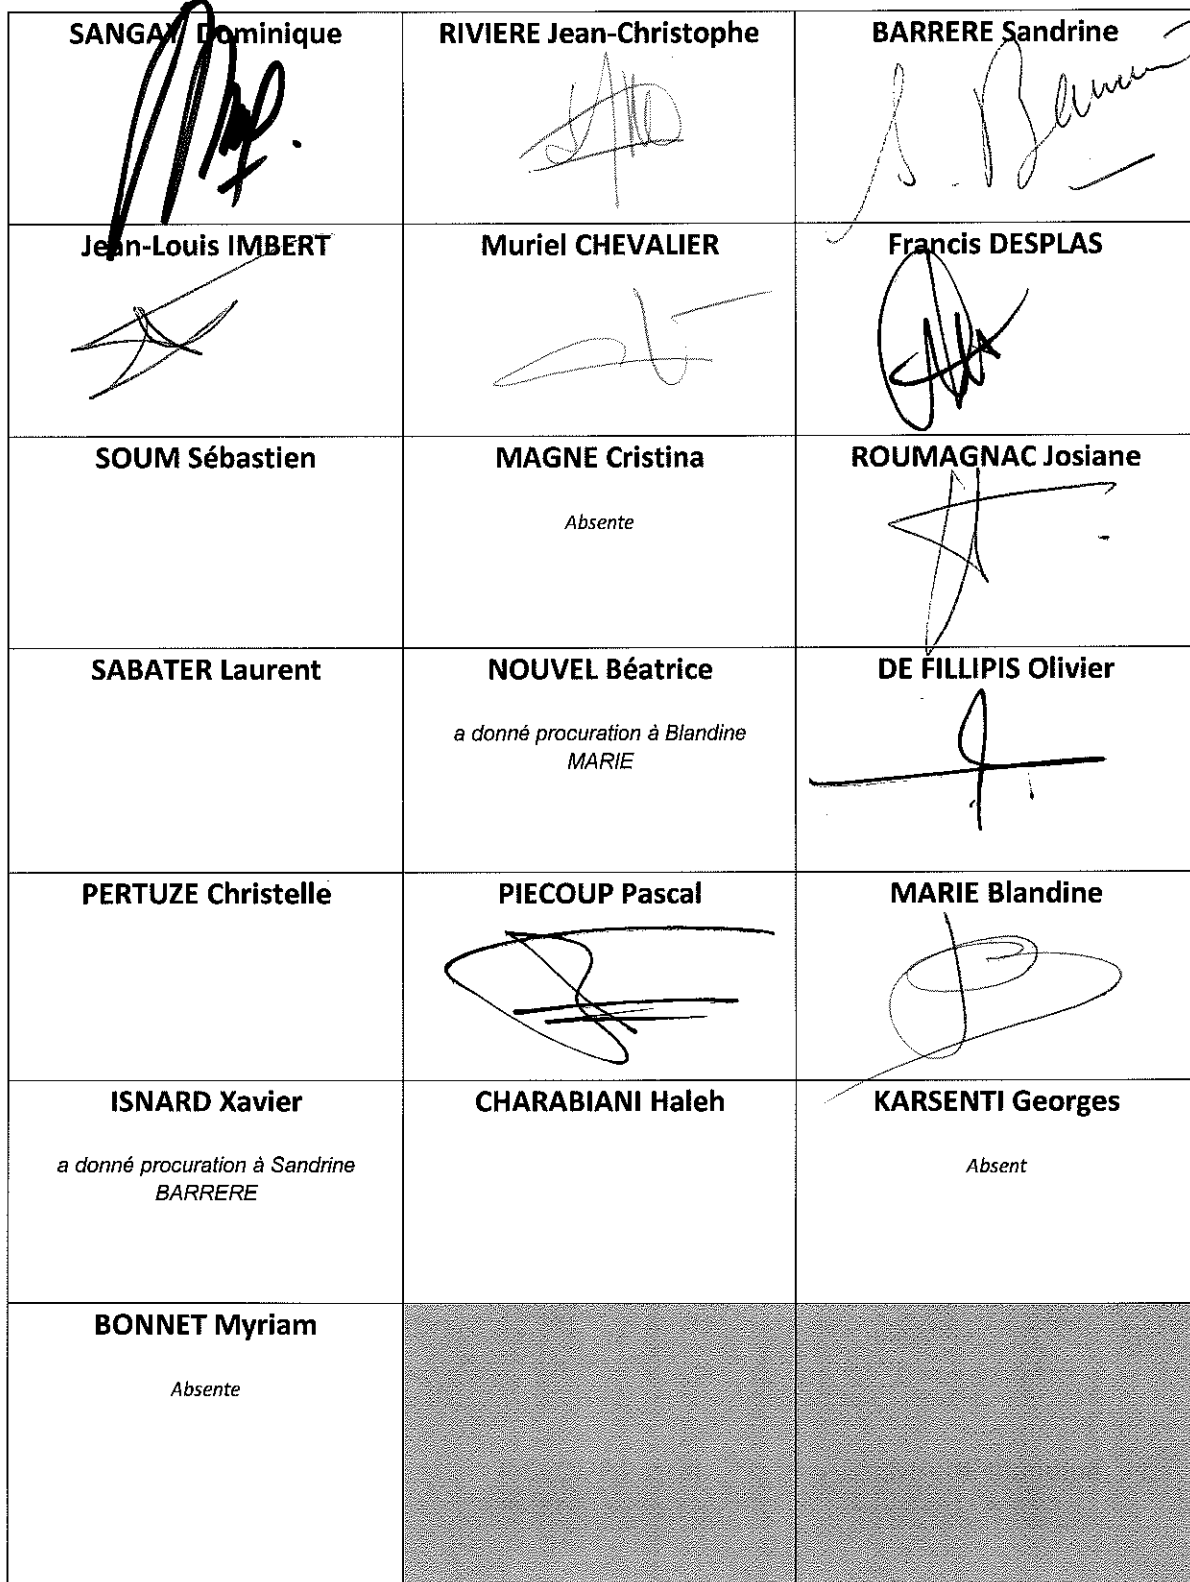 SANGAY Dominique
RIVIERE Jean-Christophe
BARRERE Sandrine
Jean-Louis IMBERT
Muriel CHEVALIER
Francis DESPLAS
SOUM Sébastien
MAGNE Cristina
Absente
ROUMAGNAC Josiane
SABATER Laurent
NOUVEL Béatrice
a donné procuration à Blandine
MARIE
DE FILLIPIS Olivier
PERTUZE Christelle
PIECOUP Pascal
MARIE Blandine
ISNARD Xavier
a donné procuration à Sandrine
BARRERE
CHARABIANI Haleh
KARSENTI Georges
Absent
BONNET Myriam
Absente